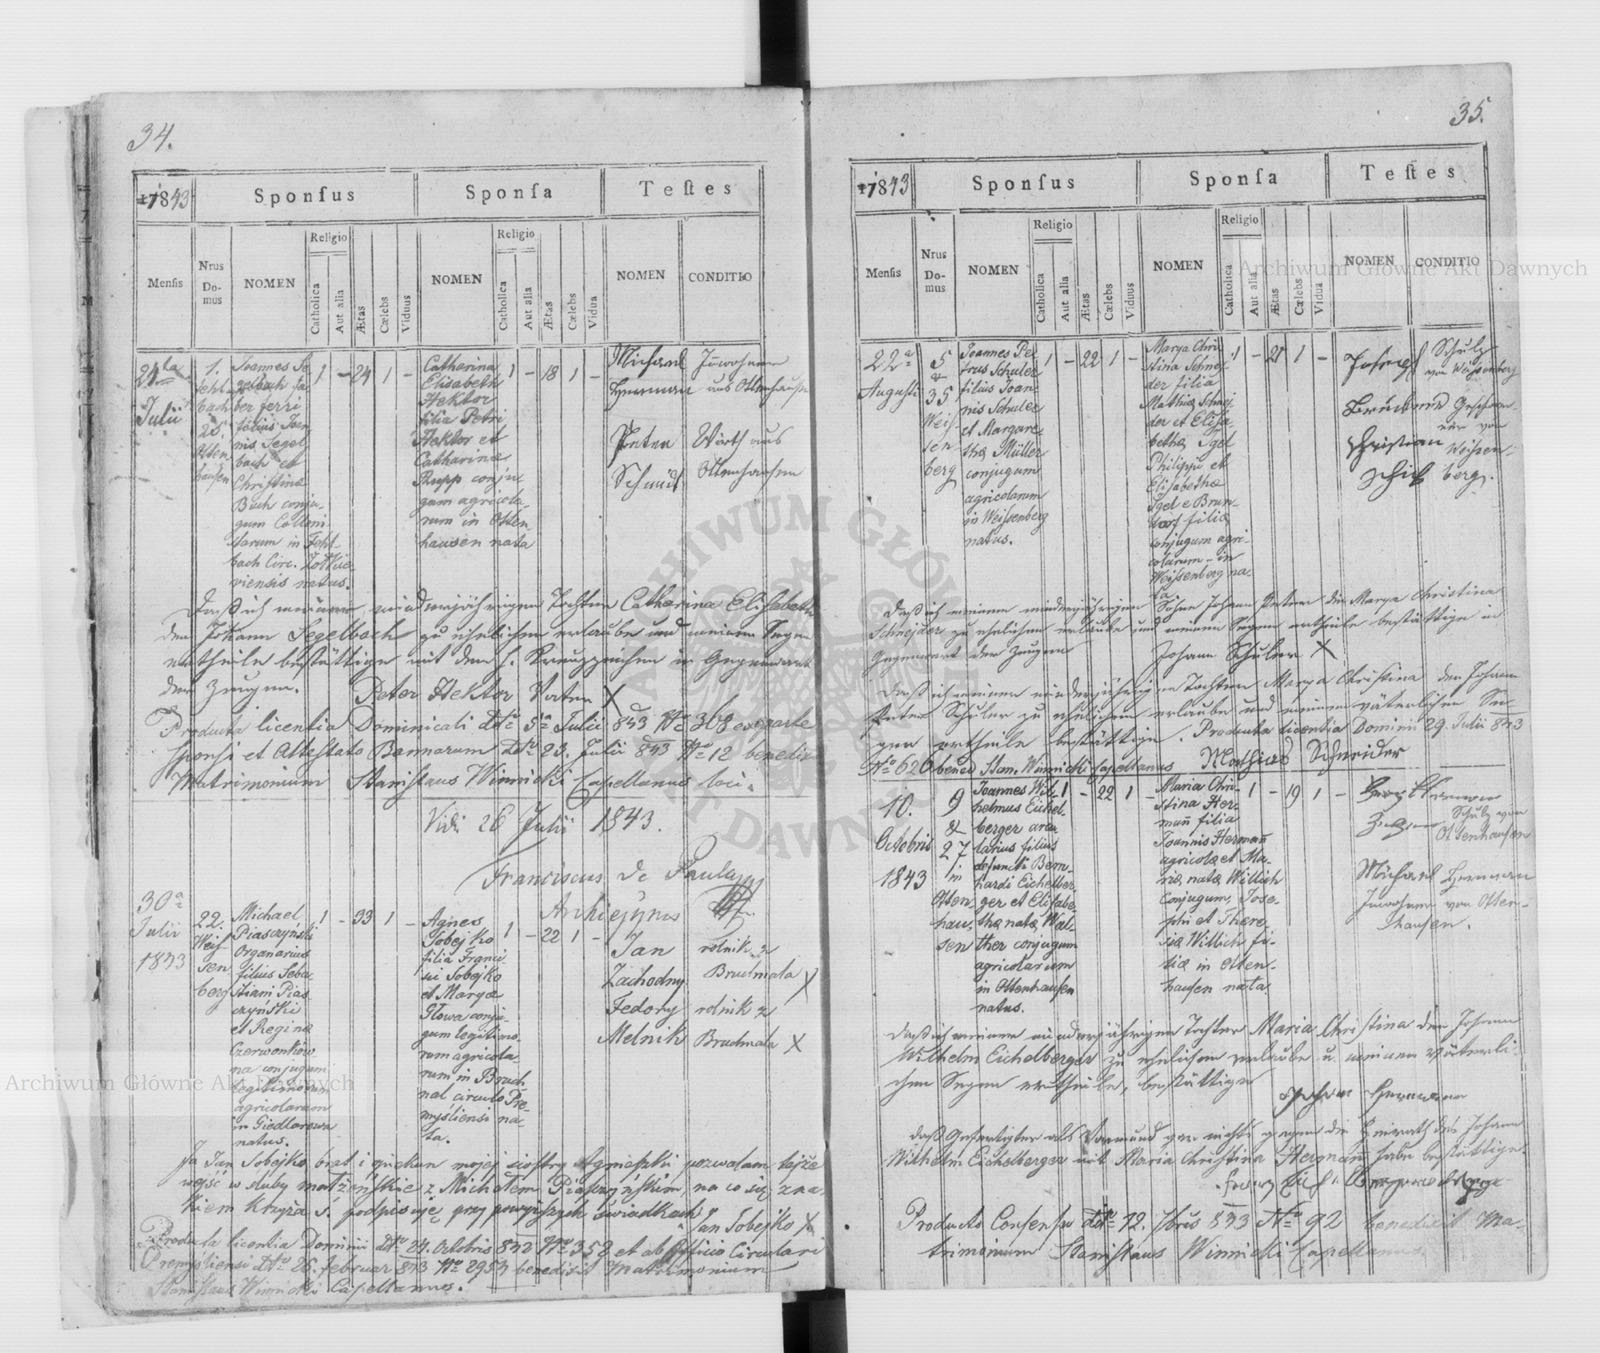 34.
1843
Sponſus
Sponſa
Teſtes
Menſis
Nrus Do-mus
NOMEN
Religio
Catholica
Aut alia
Ætas
Cælebs
Viduus
NOMEN
Religio
Catholica
Aut alia
Ætas
Cælebs
Vidua
NOMEN
CONDITIO
Julii
1.
Ottenhausen
Joannes Se
gelbach fa
ber ferri
filius Joan
nis Segel
bach et
Christinæ
Bach conju-
gum Coloni
starum in Fehl
bach Circ. Zolkie
viensis natus.
1 – 24 1 –
Catharina
Elisabeth
Hektor
filia Petri
Hektor et
Catharinæ
Rupp conju
gum agricola
rum in Otten
hausen nata
1 – 18 1 –
Michael
Herman
aus Ottenhausen
Peter
Schmidt
Wirth aus
Ottenhausen
Daß ich meiner minderjährigen Tochter Catharina Elisabeth
den Johann Segelbach zu ehelichen erlaube und meinen Segen
ertheile bestättige mit dem h. Kreuzzeichen in Gegenwart
der Zeugen.
Peter Hektor Vater X
Producta licentia Dominicali dtto 5ta Julii 843 No 368 ex parte
sponsi et Attestato Bannorum dtto 23. Julii 843 No 12 benedixi
Matrimonium Stanislaus Winnicki Capellanus loci.
Vidi 26 Julii 1843.
Franciscus de Paula
30a
Julii
1843
22.
Weis
sen
berg
Michael
Piasczyński
Organarius
filius Seba
stiani Pias
czyński
et Reginæ
Czerwonków
na conjugum
legitimorum
agricolarum
in Giedlarowa
natus.
1 – 33 1 –
Agnes
Sobejko
filia Franci
sci Sobejko
et Maryæ
Głowa conju-
gum legitimo-
rum agricola
rum in Bruch
nal circulo Pre-
mysliensi na-
ta.
1 – 22 1 –
Jan
Zachodny
rolnik z
Bruchnala X
Fedory
Melnik
rolnik z
Bruchnala X
Ja Jan Sobejko brat i opiekun mojej siostry Agnieszki pozwalam tejże
wejść w śluby małżeńskie z Michałem Piasczyńskim, na co się zna-
kiem Krzyża ś. podpisuję przy powyższych świadkach
Jan Sobejko X
Producta licentia Dominii dtto 24. Octobris 842 No 352 et ab Officio Circulari
Premysliensi dtto 26. Februar 843 No 2953 benedixi matrimonium
Stanislaus Winnicki Capellanus.
35.
1843
Sponſus
Sponſa
Teſtes
Menſis
Nrus Do-mus
NOMEN
Religio
Catholica
Aut alia
Ætas
Cælebs
Viduus
NOMEN
Religio
Catholica
Aut alia
Ætas
Cælebs
Vidua
NOMEN
CONDITIO
22a
Augusti
5
&
35
Weis-
sen
berg
Joannes Pe-
trus Schuler
filius Joan-
nis Schuler
et Margare-
thæ Müller
conjugum
agricolarum
in Weissenberg
natus.
1 – 22 1 –
Marya Chri-
stina Schnei-
der filia
Mathiæ Schnei
der et Elisa-
bethæ Igel
Philippi et
Elisabethæ
Igel e Brun-
dorf filiæ
conjugum agri-
colarum in
Weissenberg na-
ta.
1 – 21 1 –
Schulz
von Weissenberg
Christian
Schik
Weissen-
berg.
Daß ich meinem minderjährigen Sohne Johann Peter die Marya Christina
Schneider zu ehelichen erlaube und meinen Segen ertheile bestättige in
Gegenwart der Zeugen
Johann Schuler X
Daß ich meiner minderjährigen Tochter Marya Christina den Johann
Peter Schuler zu ehelichen erlaube und meinen väterlichen Se-
gen ertheile bestättige. Producta licentia Dominii 29. Julii 843
No 626 bened. Stan. Winnicki Capellanus
Mathias Schneider
10.
Octobris
1843
9
&
27
in
Otten-
hau-
sen
Joannes Wil-
helmus Eichel-
berger arcu
larius filius
defuncti Bern-
hardi Eichelber
ger et Elisabe-
thæ natæ Wal-
ther conjugum
agricolarum
in Ottenhausen
natus.
1 – 22 1 –
Maria Chri-
stina Her-
mañ filia
Joannis Hermañ
agricolæ et Ma-
riæ natæ Willich
conjugum, Jose-
phi et There-
siæ Willich fi-
liæ in Otten-
hausen nata.
1 – 19 1 –
Schulz von
Ottenhausen
Michael Herman
Inwohner von Otten-
hausen.
Daß ich meiner minderjährigen Tochter Maria Christina den Johann
Wilhelm Eichelberger zu ehelichen erlaube u. meinen väterli-
chen Segen ertheile, bestättige
Johann Hermann
Daß Gefertigter als Vormund gar nichts gegen die Heirath des Johann
Wilhelm Eichelberger mit Maria Christina Hermañ habe bestättigt
Producto Consensu dtto 12. 7bris 843 No 92 benedixit Ma-
trimonium Stanislaus Winnicki Capellanus
Archiwum Główne Akt Dawnych
Archiwum Główne Akt Dawnych
ARCHIWUM GŁÓWNE AKT DAWNYCH